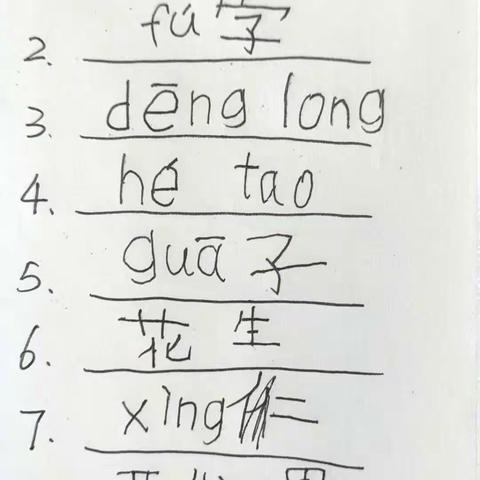 2. fú字
3. dēng long
4. hé tao
5. guā子
6. 花 生
7. xìng仁